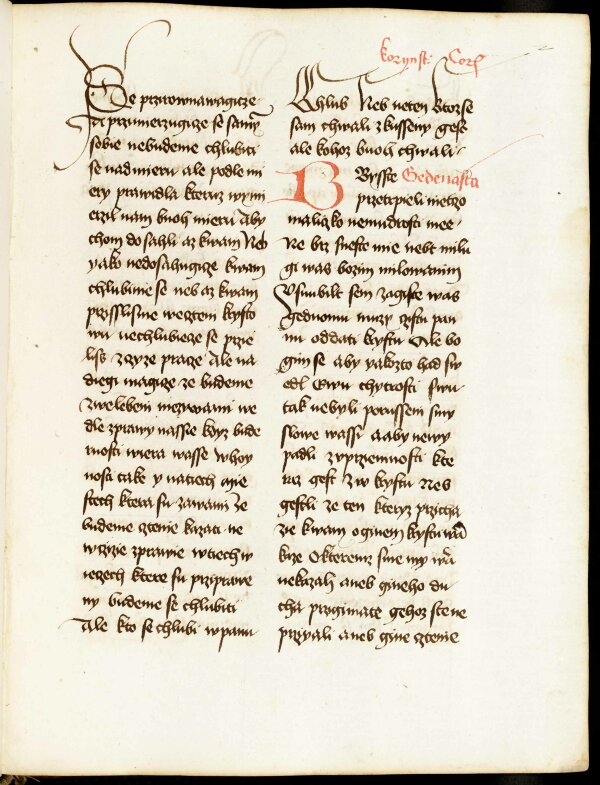 korynst: Cor
Se przirownawagicze
A przimierzugicze se samy
sobie nebudeme chlubiti
se nadmieru ale podle mi
ery prawidla kteruz wymi
erzil nam buoh mieru Aby
chom dosahli az kwam Neb
yako nedosahugicze kwam
chlubime se neb az kwam
przisslisme wcztem krysto
wu nechlubicze se przie
liss z czyze pracze Ale na
diegi magicze ze budeme
zwelebeni niezwami we
dle zprawy nassie kdyz bude
rnosti wiera wasse whoy
nosti take y natiech mie
stech ktera su zawami Ze
budeme cztenie kazati ne
w czizie zprawie wtiech w
ieczech ktere su prziprawe
ny budeme se chlubiti
Ale kto se chlubi wpanu
Chlub Neb neten ktoz se
sam chwali zkusseny gest
ale kohoz buoh chwali
Gedenasta
Byste
przetrpieli nieczo
maliczko nemudrosti mee
Ne brz sneste mie nebt milu
gi was bozim milowanim
Usnubilt sem zagiste was
gednomu muzy czistu pan
nu oddati krystu Ale bo
gim se aby yakozto had sw
edl Ewu chytrosti swu
tak nebyli porusseni smy
slowe wassi a aby newy
padli z uprziemnosti kte
raz gest z w krystu Neb
gestli ze ten kteryz przicha
zie kwam gineho krysta wam
kaze O kteremz sme my wam
nekazali aneb gineho du
cha przigimate gehoz ste ne
przyali aneb gine cztenie